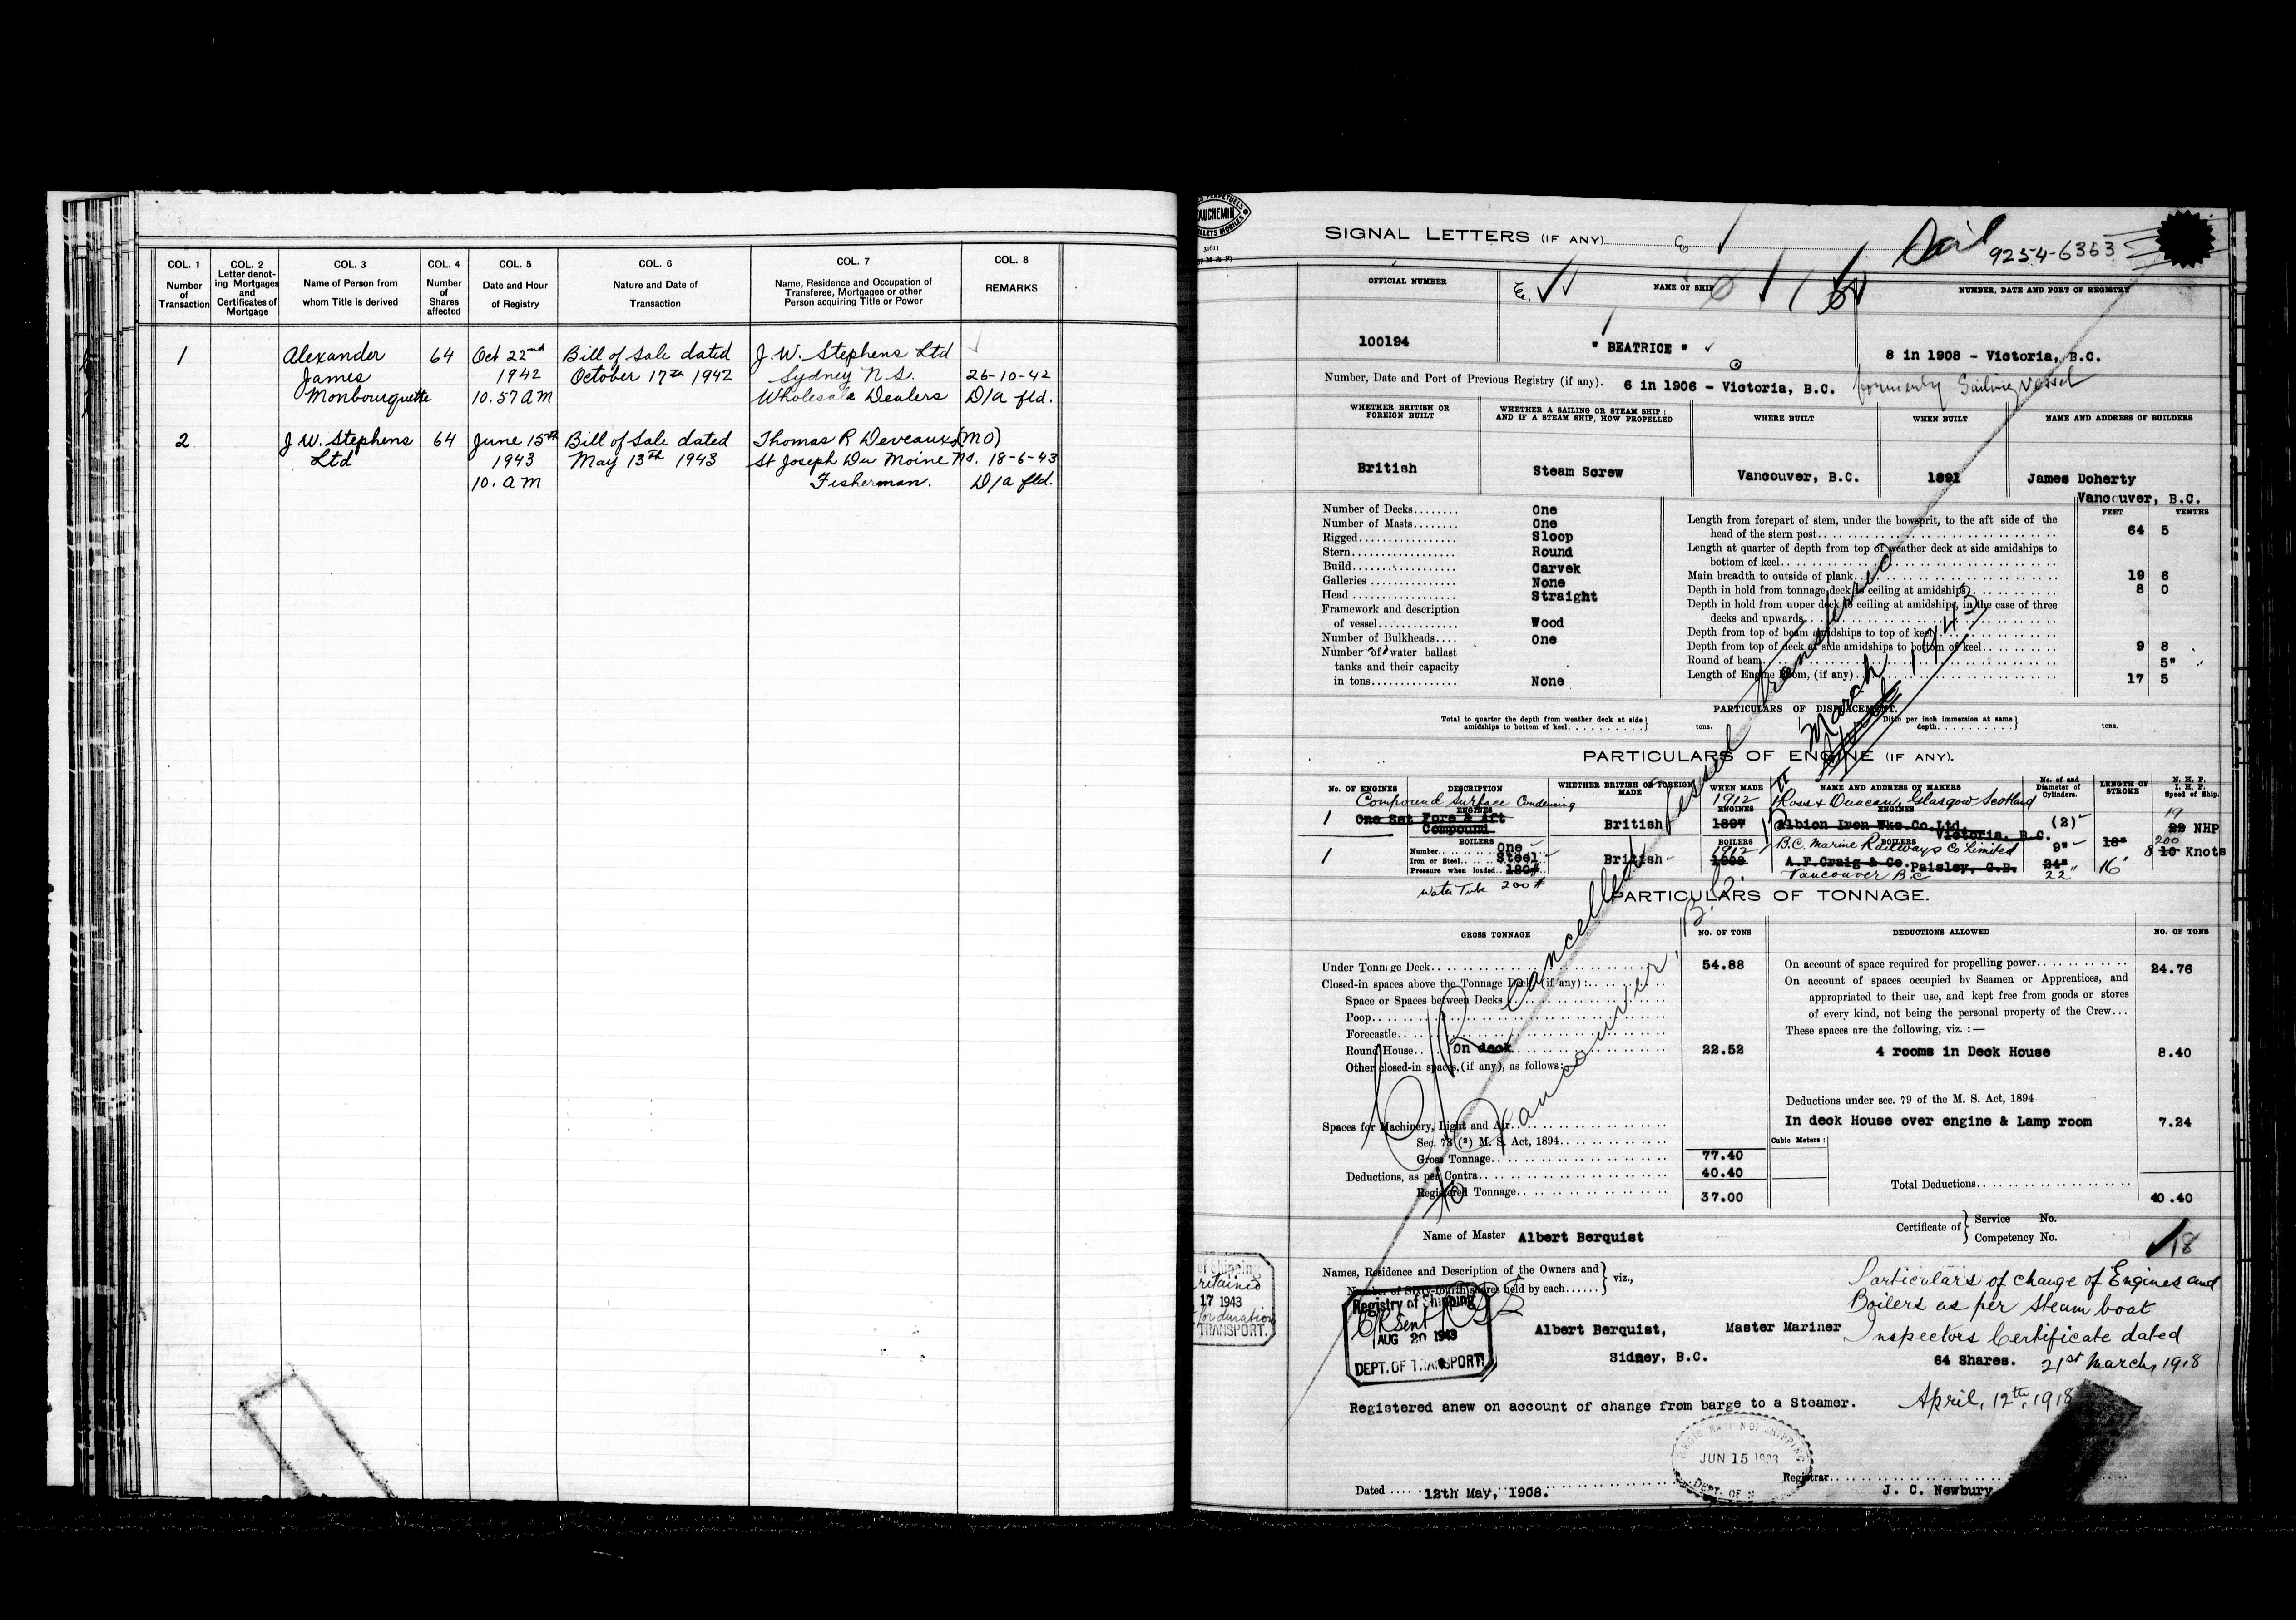 COL. 1
Number
of
Transaction
COL. 2
Letter denot-
ing Mortgages
and
Certificates of
Mortgage
COL. 3
Name of Person from
whom Title is derived
COL. 4
Number
of
Shares
affected
COL. 5
Date and Hour
of Registry
COL. 6
Nature and Date of
Transaction
COL. 7
Name, Residence and Occupation of
Transferee, Mortgagee or other
Person acquiring Title or Power
COL. 8
REMARKS
1 Alexander 64 Oct 22nd Bill of Sale dated J. W. Stephens Ltd
James 1942 October 17th 1942 Sydney N.S. 26-10-42
Monbourquette 10.57 AM Wholesale Dealers D/a fld.
2 J W. Stephens 64 June 15th Bill of Sale dated Thomas R Deveaux (MO)
Ltd 1943 May 13th 1943 St Joseph Du Moine N.S. 18-6-43
10. AM Fisherman. D/a fld.
AUCHEMIN
31611
SIGNAL LETTERS (IF ANY)
Sail
9254-6353
OFFICIAL NUMBER
NAME OF SHIP
NUMBER, DATE AND PORT OF REGISTRY
100194
" BEATRICE "
8 in 1908 - Victoria, B.C.
Number, Date and Port of Previous Registry (if any). 6 in 1906 - Victoria, B.C. formerly Sailing Vessel
WHETHER BRITISH OR
FOREIGN BUILT
WHETHER A SAILING OR STEAM SHIP:
AND IF A STEAM SHIP, HOW PROPELLED
WHERE BUILT
WHEN BUILT
NAME AND ADDRESS OF BUILDERS
British
Steam Screw
Vancouver, B.C.
1891
James Doherty
Vancouver, B.C.
Number of Decks One
Number of Masts One
Rigged Sloop
Stern Round
Build Carvek
Galleries None
Head Straight
Framework and description
of vessel Wood
Number of Bulkheads One
Number of water ballast
tanks and their capacity
in tons None
FEET TENTHS
Length from forepart of stem, under the bowsprit, to the aft side of the
head of the stern post 64 5
Length at quarter of depth from top of weather deck at side amidships to
bottom of keel
Main breadth to outside of plank 19 6
Depth in hold from tonnage deck to ceiling at amidships 8 0
Depth in hold from upper deck to ceiling at amidships, in the case of three
decks and upwards
Depth from top of beam amidships to top of keel
Depth from top of deck at side amidships to bottom of keel 9 8
Round of beam 5"
Length of Engine Room, (if any) 17 5
PARTICULARS OF DISPLACEMENT.
Total to quarter the depth from weather deck at side
amidships to bottom of keel
tons.
Ditto per inch immersion at same
depth
tons.
PARTICULARS OF ENGINE (IF ANY).
No. OF ENGINES
DESCRIPTION
WHETHER BRITISH OR FOREIGN
MADE
WHEN MADE
NAME AND ADDRESS OF MAKERS
No. of and
Diameter of
Cylinders.
LENGTH OF
STROKE
N. H. P.
I. H. P.
Speed of Ship.
Compound Surface Condensing
1912
Ross & Duncan, Glasgow Scotland
ENGINES
ENGINES
ENGINES
1 One Set Fore & Aft
Compound
British
1897
Albion Iron Wks.Co.Ltd.
Victoria, B.C.
(2)
19
NHP
BOILERS
BOILERS
BOILERS
1
Number One
Iron or Steel Steel
Pressure when loaded 180#
Water Tube 200#
British
1912
1908
B.C. Marine Railways Co Limited
A.F.Craig & Co. Paisley, G.B.
Vancouver B.C
9"
24"
22"
18"
16"
200
8 10 Knots
PARTICULARS OF TONNAGE.
GROSS TONNAGE
NO. OF TONS
DEDUCTIONS ALLOWED
NO. OF TONS
Under Tonnage Deck 54.88
Closed-in spaces above the Tonnage Deck (if any):
Space or Spaces between Decks
Poop
Forecastle
Round House On deck 22.52
Other closed-in spaces, (if any), as follows:
Spaces for Machinery, Light and Air
Sec. 78 (2) M. S. Act, 1894
Gross Tonnage 77.40
Deductions, as per Contra 40.40
Registered Tonnage 37.00
On account of space required for propelling power 24.76
On account of spaces occupied by Seamen or Apprentices, and
appropriated to their use, and kept free from goods or stores
of every kind, not being the personal property of the Crew
These spaces are the following, viz.:—
4 rooms in Deck House 8.40
Deductions under sec. 79 of the M. S. Act, 1894
In deck House over engine & Lamp room 7.24
Cubic Meters:
Total Deductions 40.40
C/R cancelled vessel transferred
to Vancouver, B.C.
March 1943
Name of Master Albert Berquist
Certificate of
Service No.
Competency No.
18
Names, Residence and Description of the Owners and
Number of Sixty-fourth shares held by each
viz.,
Albert Berquist, Master Mariner
Sidney, B.C.
64 Shares.
Particulars of change of Engines and
Boilers as per Steam boat
Inspectors Certificate dated
21st March, 1918
April, 12th, 1918
of Shipping
retained
17 1943
for duration
TRANSPORT.
Registry of Shipping
C/R Sent
AUG 20 1943
DEPT. OF TRANSPORT.
Registered anew on account of change from barge to a Steamer.
JUN 15
Dated 12th May, 1908.
Registrar
J. C. Newbury